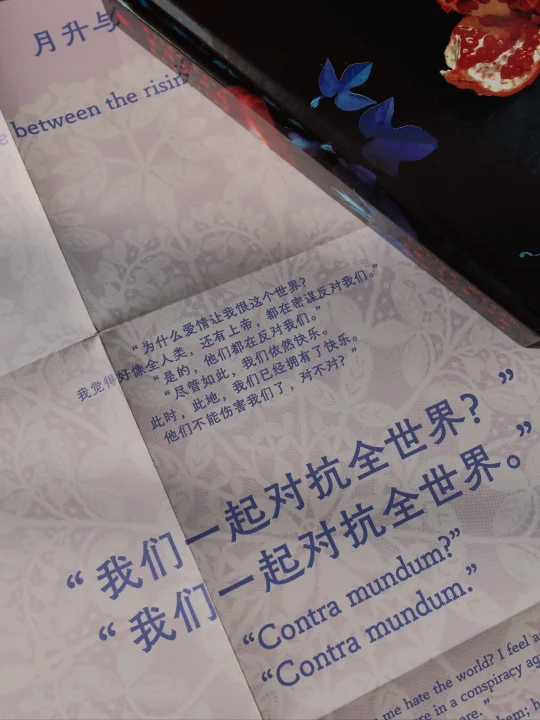 月升与
e between the risin
“为什么爱情让我恨这个世界?
我觉得好像全人类，还有上帝，都在密谋反对我们。”
“是的，他们都在反对我们。”
“尽管如此，我们依然快乐。
此时，此地，我们已经拥有了快乐。
他们不能伤害我们了，对不对？”
“我们一起对抗全世界？”
“我们一起对抗全世界。”
“Contra mundum?”
“Contra mundum.”
me hate the world? I feel a
re in a conspiracy ag
are.”
hem; h